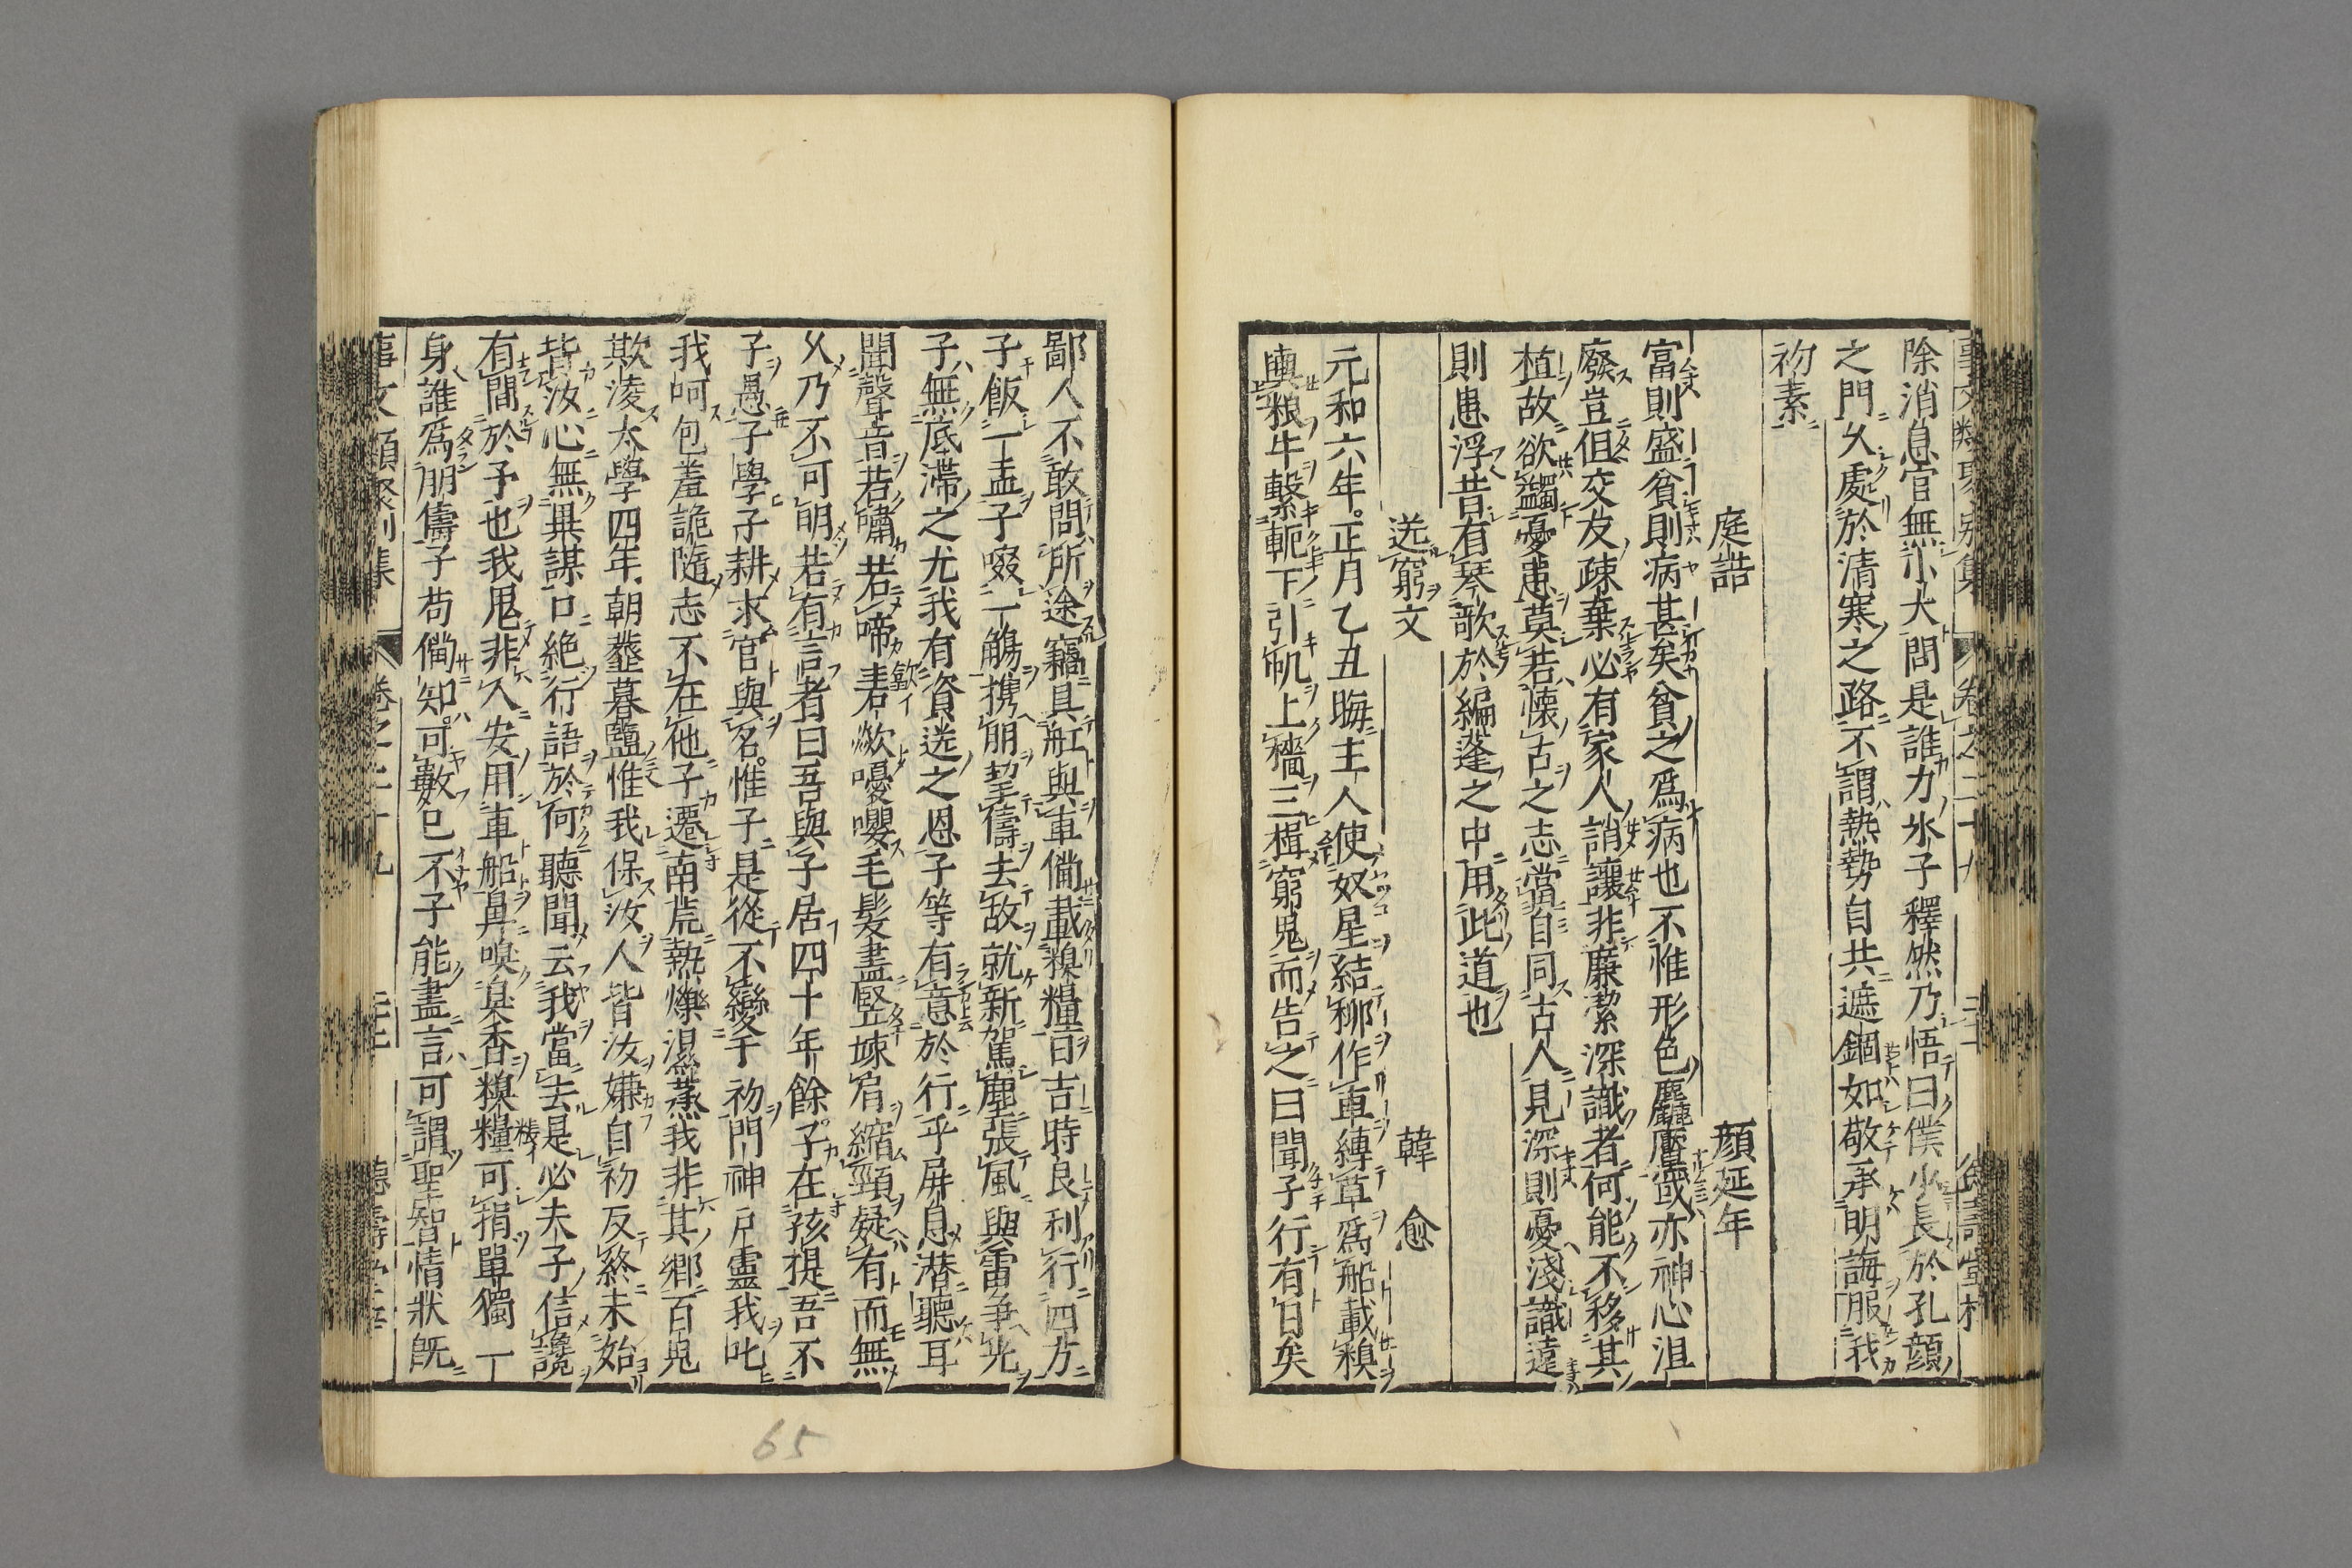 除消息官無小大問是誰力氷子釋然乃悟曰僕少長於孔顔
之門久處於清寒之路不謂熱勢自共遮錮如敬承明誨服我
初素
庭誥 顔延年
富則盛貧則病甚矣貧之爲病也不惟形色麤黶或亦神心沮
廢豈但交友疎棄必有家人誚讓非廉潔深識者何能不移其
植故欲蠲憂患莫若懷古之志當自同古人見深則憂淺識遠
則患浮昔有琴歌於編蓬之中用此道也
送窮文 韓愈
元和六年正月乙丑晦主人使奴星結柳作車縛草爲船載糗
輿粮牛繋軛下引帆上檣三揖窮鬼而告之曰聞子行有日矣
鄙人不敢問所途竊具舡與車備載糗糧日吉時良利行四方
子飯一盂子啜一觴携朋挈儔去故就新駕塵張風與雷爭先
子無底滯之尤我有資送之恩子等有意於行乎屏息潜聽
耳聞聲音若嘯若啼砉欻嚘嚶毛髮盡竪竦肩縮頸疑有而無
久乃可明若有言者曰吾與子居四十年餘子在孩提吾不
子愚子學子耕求官與名惟子是從不變于初門神戸靈我叱
我呵包羞詭隨志不在他子遷南荒熱爍濕蒸我非其郷百鬼
欺凌太學四年朝虀暮鹽惟我保汝人皆汝嫌自初及終未始
背汝心無異謀口絶行語於何聽聞云我當去是必夫子信讒
有間於予也我鬼非人安用車船鼻嗅臭香糗糧可捐單獨一
身誰爲朋儔子苟備知可數已不子能盡言可謂聖智情狀既
事文類聚別集 卷之二十九